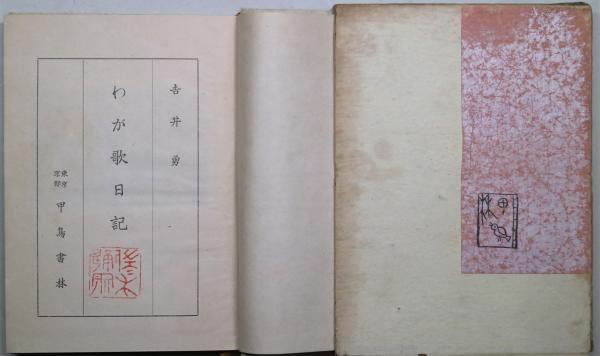 吉井勇
わが歌日記
東京
京都
甲鳥書林